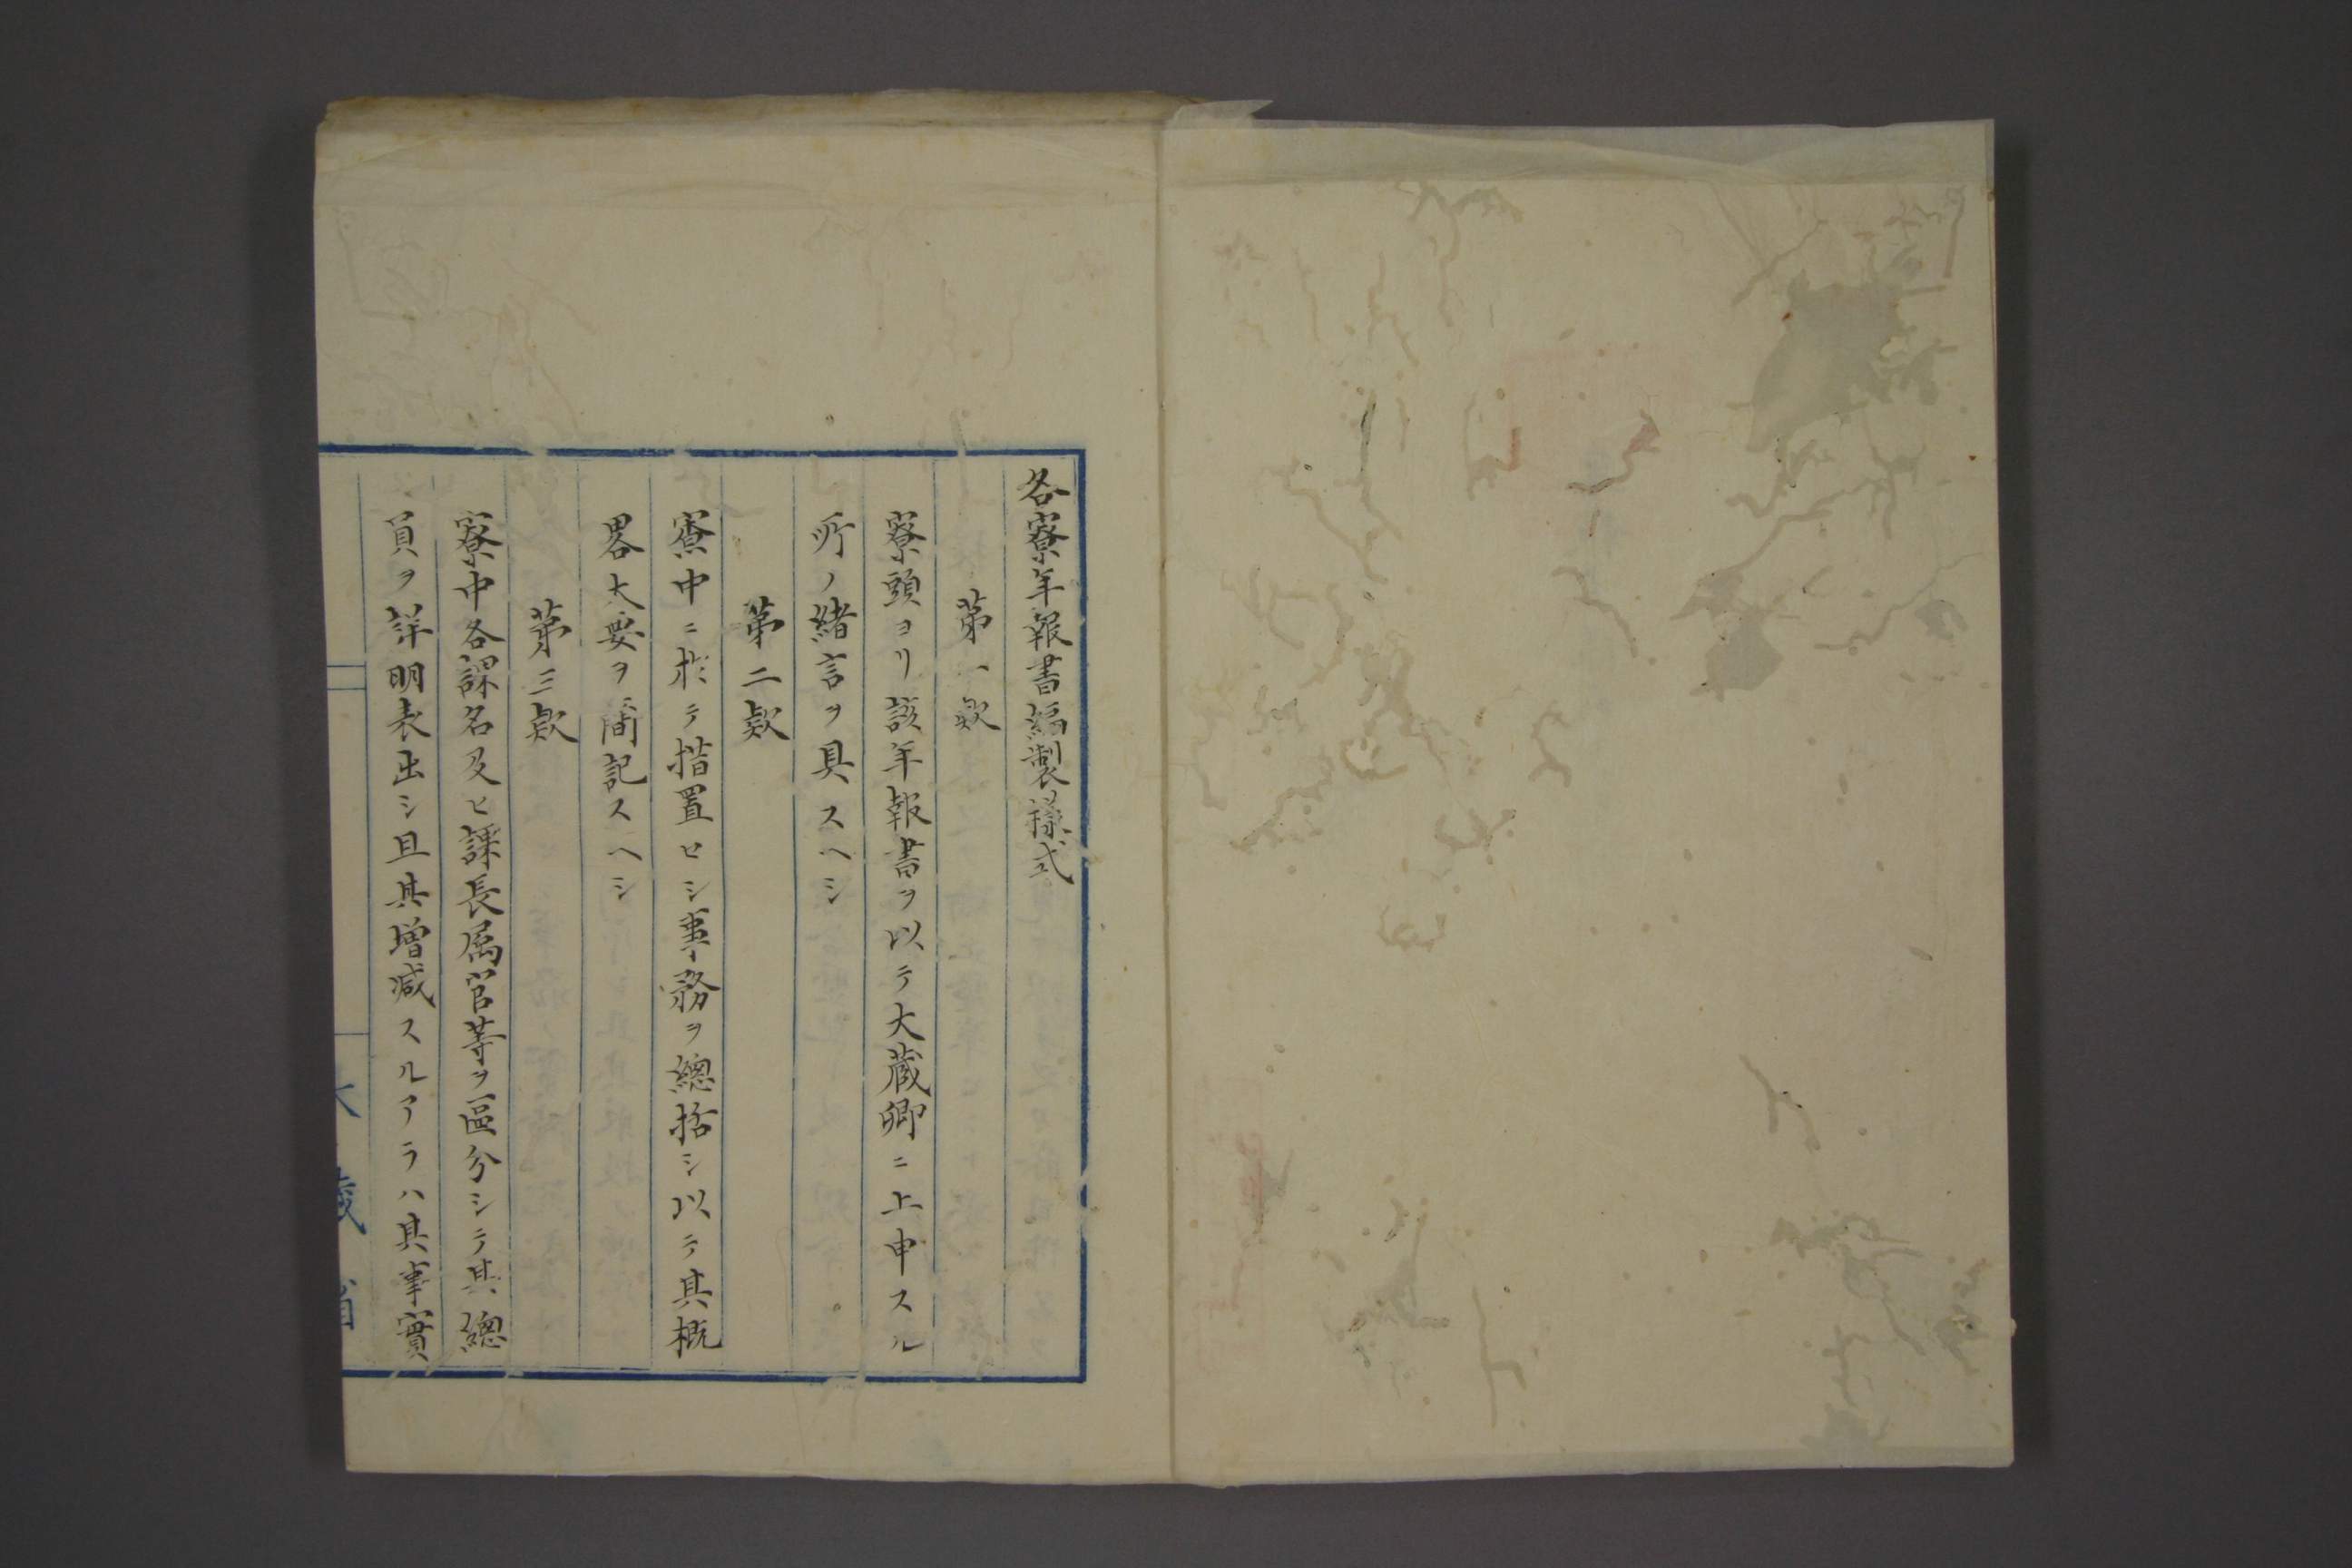 各寮年報書編製樣式
第一欵
寮頭ヨリ該年報書ヲ以テ大蔵卿ニ上申スル
所ノ緒言ヲ具スヘシ
第二欵
寮中ニ於テ措置セシ事務ヲ總括シ以テ其概
畧大要ヲ簡記スヘシ
第三欵
寮中各課名及ヒ課長属官等ヲ區分シテ其總
員ヲ詳明表出シ且其增減スルアラハ其事實
大藏省